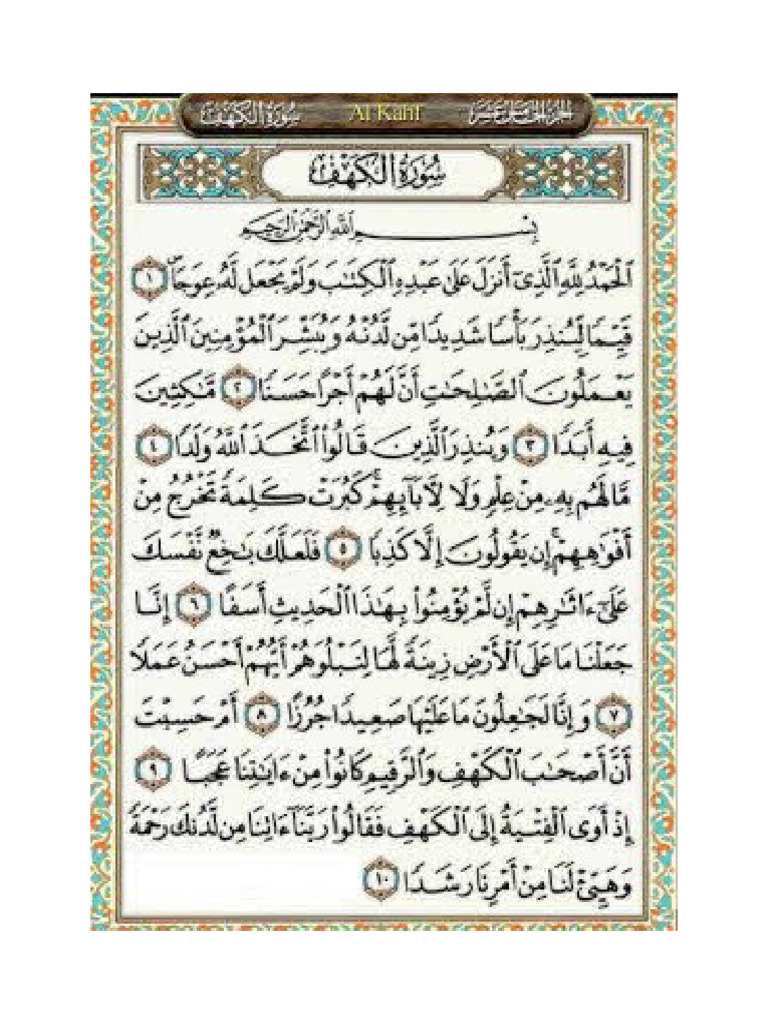 سورة الكهف Al Kahf الجزء الخامس عشر
سُورَةُ الْكَهْفِ
بِسْمِ اللَّهِ الرَّحْمَٰنِ الرَّحِيمِ
الْحَمْدُ لِلَّهِ الَّذِي أَنزَلَ عَلَىٰ عَبْدِهِ الْكِتَابَ وَلَمْ يَجْعَل لَّهُ عِوَجًا ۜ ١
قَيِّمًا لِّيُنذِرَ بَأْسًا شَدِيدًا مِّن لَّدُنْهُ وَيُبَشِّرَ الْمُؤْمِنِينَ الَّذِينَ
يَعْمَلُونَ الصَّالِحَاتِ أَنَّ لَهُمْ أَجْرًا حَسَنًا ٢ مَّاكِثِينَ
فِيهِ أَبَدًا ٣ وَيُنذِرَ الَّذِينَ قَالُوا اتَّخَذَ اللَّهُ وَلَدًا ٤
مَّا لَهُم بِهِ مِنْ عِلْمٍ وَلَا لِآبَائِهِمْ ۚ كَبُرَتْ كَلِمَةً تَخْرُجُ مِنْ
أَفْوَاهِهِمْ ۚ إِن يَقُولُونَ إِلَّا كَذِبًا ٥ فَلَعَلَّكَ بَاخِعٌ نَّفْسَكَ
عَلَىٰ آثَارِهِمْ إِن لَّمْ يُؤْمِنُوا بِهَٰذَا الْحَدِيثِ أَسَفًا ٦ إِنَّا
جَعَلْنَا مَا عَلَى الْأَرْضِ زِينَةً لَّهَا لِنَبْلُوَهُمْ أَيُّهُمْ أَحْسَنُ عَمَلًا
٧ وَإِنَّا لَجَاعِلُونَ مَا عَلَيْهَا صَعِيدًا جُرُزًا ٨ أَمْ حَسِبْتَ
أَنَّ أَصْحَابَ الْكَهْفِ وَالرَّقِيمِ كَانُوا مِنْ آيَاتِنَا عَجَبًا ٩
إِذْ أَوَى الْفِتْيَةُ إِلَى الْكَهْفِ فَقَالُوا رَبَّنَا آتِنَا مِن لَّدُنكَ رَحْمَةً
وَهَيِّئْ لَنَا مِنْ أَمْرِنَا رَشَدًا ١٠